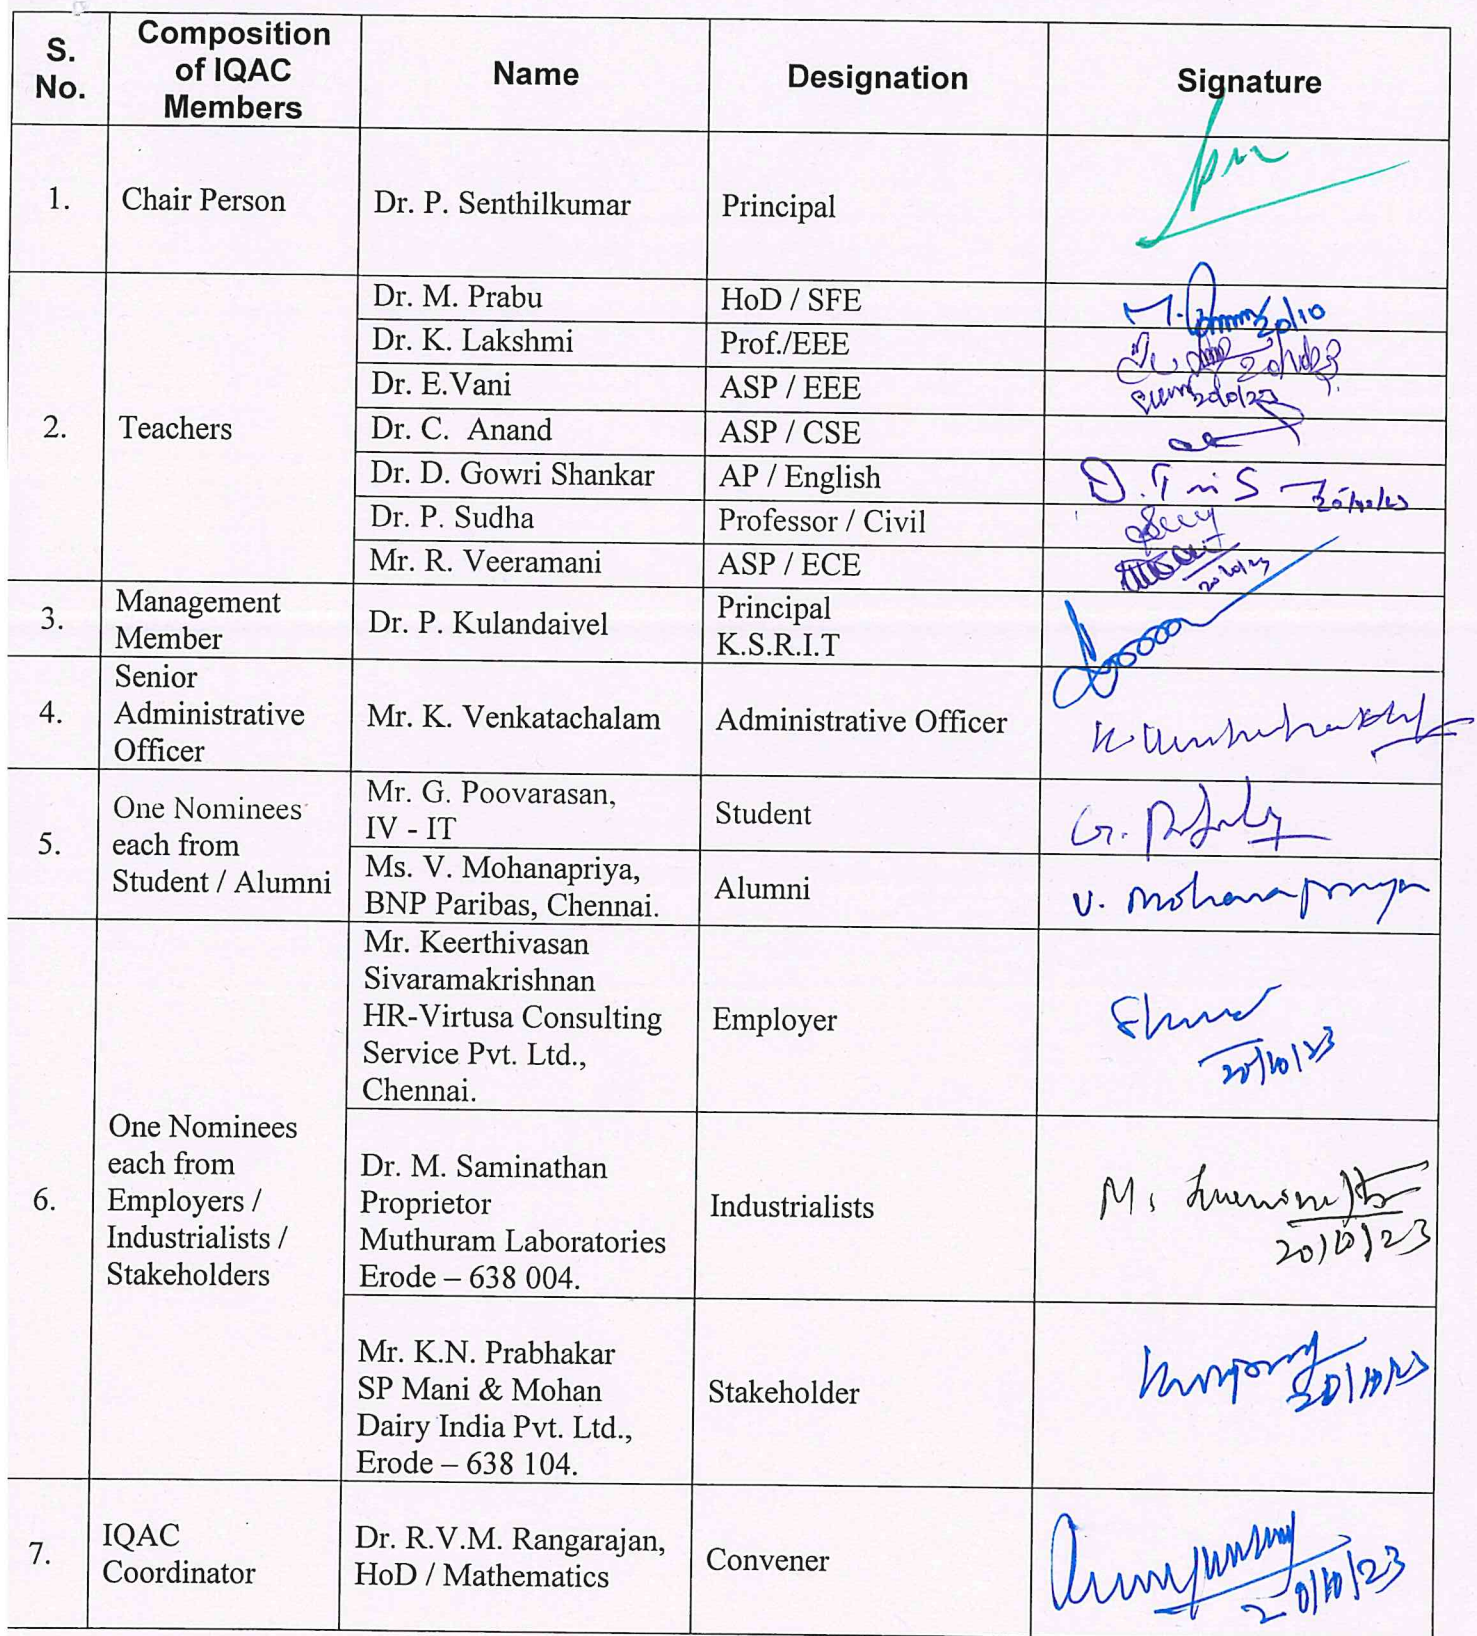 S. No.
Composition of IQAC Members
Name
Designation
Signature
1.
Chair Person
Dr. P. Senthilkumar
Principal
2.
Teachers
Dr. M. Prabu
HoD / SFE
20/10
Dr. K. Lakshmi
Prof./EEE
Dr. E.Vani
ASP / EEE
Dr. C. Anand
ASP / CSE
Dr. D. Gowri Shankar
AP / English
Dr. P. Sudha
Professor / Civil
Mr. R. Veeramani
ASP / ECE
3.
Management
Member
Dr. P. Kulandaivel
Principal
K.S.R.I.T
4.
Senior
Administrative
Officer
Mr. K. Venkatachalam
Administrative Officer
5.
One Nominees
each from
Student / Alumni
Mr. G. Poovarasan,
IV - IT
Student
Ms. V. Mohanapriya,
BNP Paribas, Chennai.
Alumni
V. Mohanapriya
6.
One Nominees
each from
Employers /
Industrialists /
Stakeholders
Mr. Keerthivasan
Sivaramakrishnan
HR-Virtusa Consulting
Service Pvt. Ltd.,
Chennai.
Employer
20/10/23
Dr. M. Saminathan
Proprietor
Muthuram Laboratories
Erode – 638 004.
Industrialists
20/10/23
Mr. K.N. Prabhakar
SP Mani & Mohan
Dairy India Pvt. Ltd.,
Erode – 638 104.
Stakeholder
20/10/23
7.
IQAC
Coordinator
Dr. R.V.M. Rangarajan,
HoD / Mathematics
Convener
20/10/23